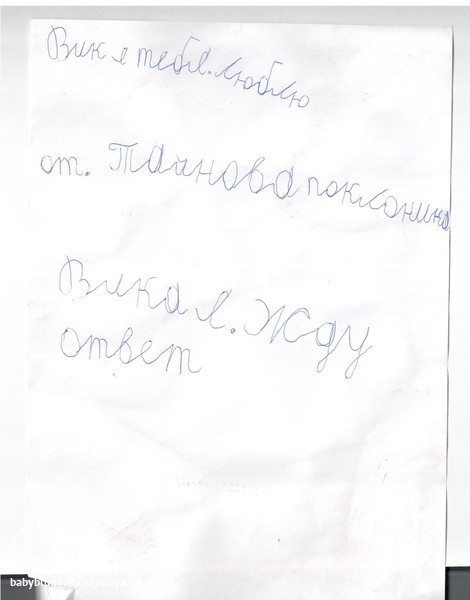 Вик я тебя. люблю
от. Таинова поклоника
Вика я. Жду
ответ